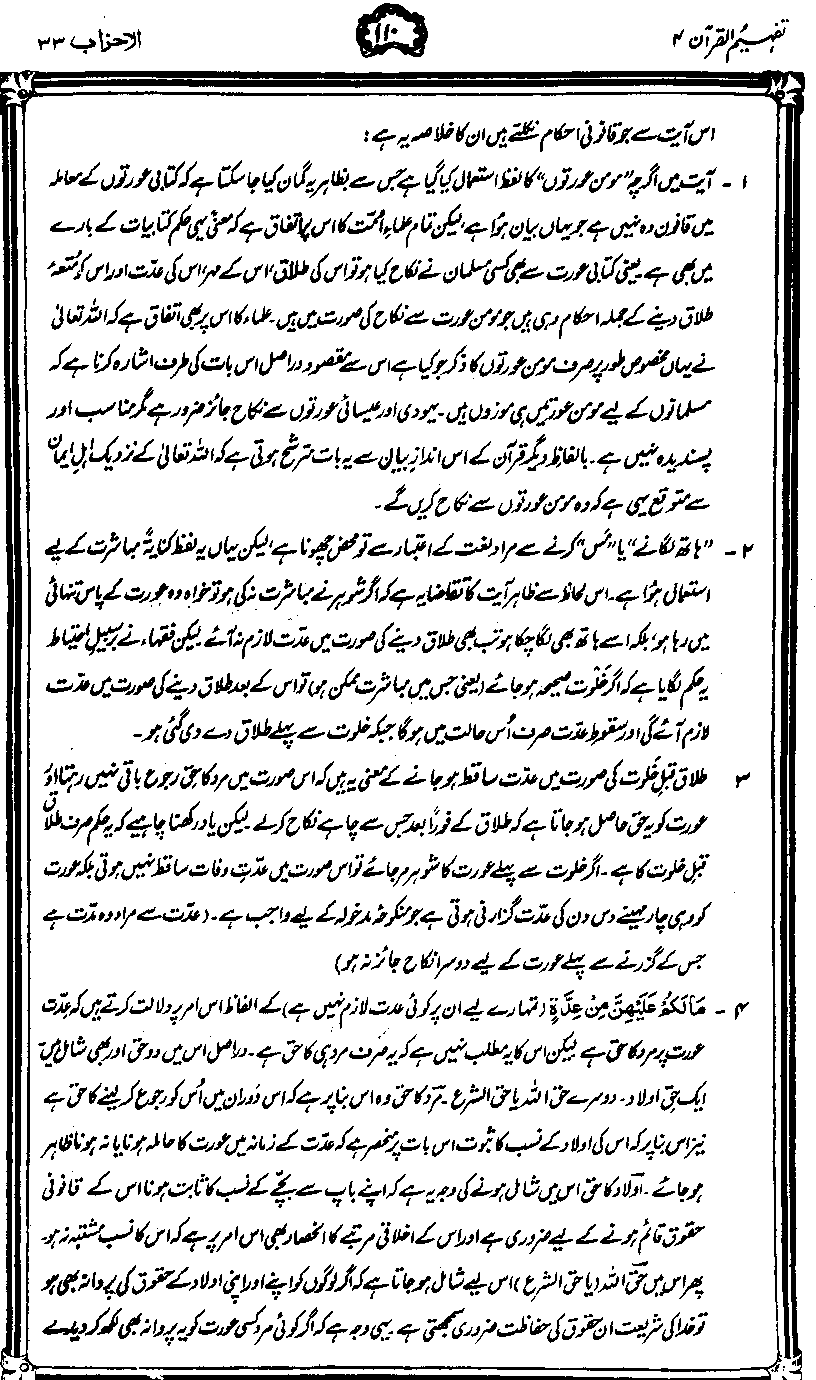 تفہیم القرآن ۴
۱۱۰
الاحزاب ۳۳
اس آیت سے جو قانونی احکام نکلتے ہیں ان کا خلاصہ یہ ہے:
۱ - آیت میں اگرچہ ”مومن عورتوں“ کا لفظ استعمال کیا گیا ہے جس سے بظاہر یہ گمان کیا جا سکتا ہے کہ کتابی عورتوں کے معاملہ
میں قانون وہ نہیں ہے جو یہاں بیان ہؤا ہے، لیکن تمام علماء اُمّت کا اس پر اتفاق ہے کہ معنیً یہی حکم کتابیات کے بارے
میں بھی ہے یعنی کتابی عورت سے بھی کسی مسلمان نے نکاح کیا ہو تو اس کی طلاق، اس کے مہر، اس کی عدّت اور اس کو مُتعۂ
طلاق دینے کے جملہ احکام وہی ہیں جو مومن عورت سے نکاح کی صورت میں ہیں۔ علماء کا اس پر بھی اتفاق ہے کہ اللہ تعالیٰ
نے یہاں مخصوص طور پر صرف مومن عورتوں کا ذکر جو کیا ہے اس سے مقصود دراصل اس بات کی طرف اشارہ کرنا ہے کہ
مسلمانوں کے لیے مومن عورتیں ہی موزوں ہیں۔ یہودی اور عیسائی عورتوں سے نکاح جائز ضرور ہے مگر مناسب اور
پسندیدہ نہیں ہے۔ بالفاظِ دیگر قرآن کے اس اندازِ بیان سے یہ بات مترشح ہوتی ہے کہ اللہ تعالیٰ کے نزدیک اہلِ ایمان
سے متوقع یہی ہے کہ وہ مومن عورتوں سے نکاح کریں گے۔
۲ - ”ہاتھ لگانے“ یا ”مَس“ کرنے سے مراد لغت کے اعتبار سے تو محض چھونا ہے، لیکن یہاں یہ لفظ کنایۃً مباشرت کے لیے
استعمال ہؤا ہے۔ اس لحاظ سے ظاہر آیت کا تقاضا یہ ہے کہ اگر شوہر نے مباشرت نہ کی ہو تو خواہ وہ عورت کے پاس تنہائی
میں رہا ہو، بلکہ اسے ہاتھ بھی لگا چکا ہو تب بھی طلاق دینے کی صورت میں عدّت لازم نہ آئے۔ لیکن فقہاء نے برسبیلِ احتیاط
یہ حکم لگایا ہے کہ اگر خَلوت صحیحہ ہو جائے (یعنی جس میں مباشرت ممکن ہو) تو اس کے بعد طلاق دینے کی صورت میں عدّت
لازم آئے گی اور سقوطِ عدّت صرف اُس حالت میں ہوگا جبکہ خلوت سے پہلے طلاق دے دی گئی ہو۔
۳ طلاق قبلِ خَلوت کی صورت میں عدّت ساقط ہو جانے کے معنی یہ ہیں کہ اس صورت میں مرد کا حقِ رجوع باقی نہیں رہتا اور
عورت کو یہ حق حاصل ہو جاتا ہے کہ طلاق کے فوراً بعد جس سے چاہے نکاح کر لے۔ لیکن یاد رکھنا چاہیے کہ یہ حکم صرف طلاق
قبلِ خلوت کا ہے۔ اگر خلوت سے پہلے عورت کا شوہر مر جائے تو اس صورت میں عدّتِ وفات ساقط نہیں ہوتی بلکہ عورت
کو وہی چار مہینے دس دن کی عدّت گزارنی ہوتی ہے جو منکوحۂ مدخولہ کے لیے واجب ہے۔ (عدّت سے مراد وہ مدّت ہے
جس کے گزرنے سے پہلے عورت کے لیے دوسرا نکاح جائز نہ ہو)
۴ - مَا لَكُمْ عَلَيْهِنَّ مِنْ عِدَّةٍ (تمہارے لیے ان پر کوئی عدت لازم نہیں ہے) کے الفاظ اس امر پر دلالت کرتے ہیں کہ عدّت
عورت پر مرد کا حق ہے لیکن اس کا یہ مطلب نہیں ہے کہ یہ صرف مرد ہی کا حق ہے۔ دراصل اس میں دو حق اور بھی شامل ہیں
ایک حقِ اولاد۔ دوسرے حق اللہ یا حق الشرع۔ مرد کا حق وہ اس بنا پر ہے کہ اس دَوران میں اُس کو رجوع کر لینے کا حق ہے
نیز اس بنا پر کہ اس کی اولاد کے نسب کا ثبوت اس بات پر منحصر ہے کہ عدّت کے زمانہ میں عورت کا حاملہ ہونا یا نہ ہونا ظاہر
ہو جائے۔ اولاد کا حق اس میں شامل ہونے کی وجہ یہ ہے کہ اپنے باپ سے بچّے کے نسب کا ثابت ہونا اس کے قانونی
حقوق قائم ہونے کے لیے ضروری ہے اور اس کے اخلاقی مرتبے کا انحصار بھی اس امر پر ہے کہ اس کا نسب مشتبہ نہ ہو۔
پھر اس میں حق اللہ (یا حق الشرع) اس لیے شامل ہو جاتا ہے کہ اگر لوگوں کو اپنے اور اپنی اولاد کے حقوق کی پروا نہ بھی ہو
تو خدا کی شریعت ان حقوق کی حفاظت ضروری سمجھتی ہے۔ یہی وجہ ہے کہ اگر کوئی مرد کسی عورت کو یہ پروانہ بھی لکھ کر دیدے